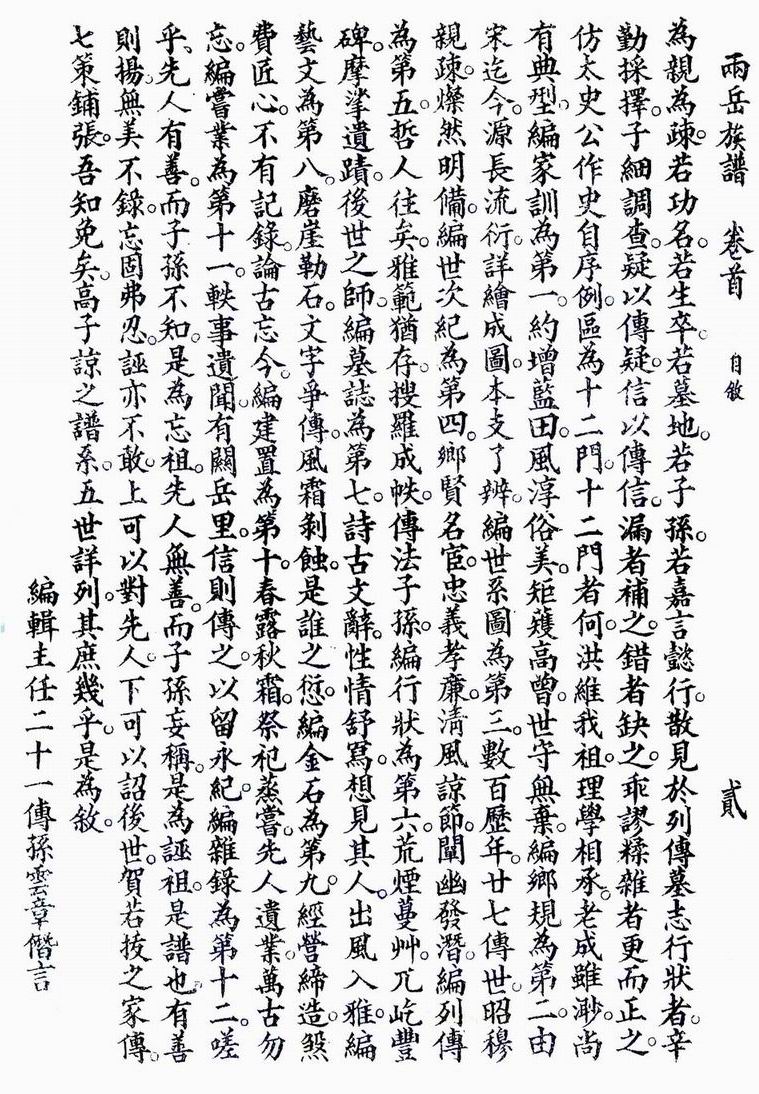 兩岳族譜 卷首 自敘 貳
為親為疎。若功名。若生卒。若墓地。若子孫。若嘉言懿行。散見於列傳墓志行狀者。辛
勤採擇。子細調查。疑以傳疑。信以傳信。漏者補之。錯者缺之。乖謬糅雜者。更而正之。
仿太史公作史自序例。區為十二門。十二門者何。洪維我祖。理學相承。老成雖渺。尚
有典型。編家訓為第一。約增藍田。風淳俗美。矩矱高曾。世守無棄。編鄉規為第二。由
宋迄今。源長流衍。詳繪成圖。本支了辨。編世系圖為第三。數百歷年。廿七傳世。昭穆
親疎。燦然明備。編世次紀為第四。鄉賢名宦。忠義孝廉。淸風諒節。闡幽發潛。編列傳
為第五。哲人往矣。雅範猶存。搜羅成帙。傳法子孫。編行狀為第六。荒煙蔓艸。兀屹豐
碑。摩挲遺蹟。後世之師。編墓誌為第七。詩古文辭。性情舒寫。想見其人。出風入雅。編
藝文為第八。磨崖勒石。文字爭傳。風霜剝蝕。是誰之愆。編金石為第九。經營締造。煞
費匠心。不有記錄。論古忘今。編建置為第十。春露秋霜。祭祀蒸嘗。先人遺業。萬古勿
忘。編嘗業為第十一。軼事遺聞。有關岳里。信則傳之。以留永紀。編雜錄為第十二。嗟
乎。先人有善。而子孫不知。是為忘祖。先人無善。而子孫妄稱。是為誣祖。是譜也。有善
則揚。無美不錄。忘固弗忍。誣亦不敢。上可以對先人。下可以詔後世。賀若拔之家傳。
七策鋪張。吾知免矣。高子諒之譜系。五世詳列。其庶幾乎。是為敘。
編輯主任二十一傳孫雲章僭言